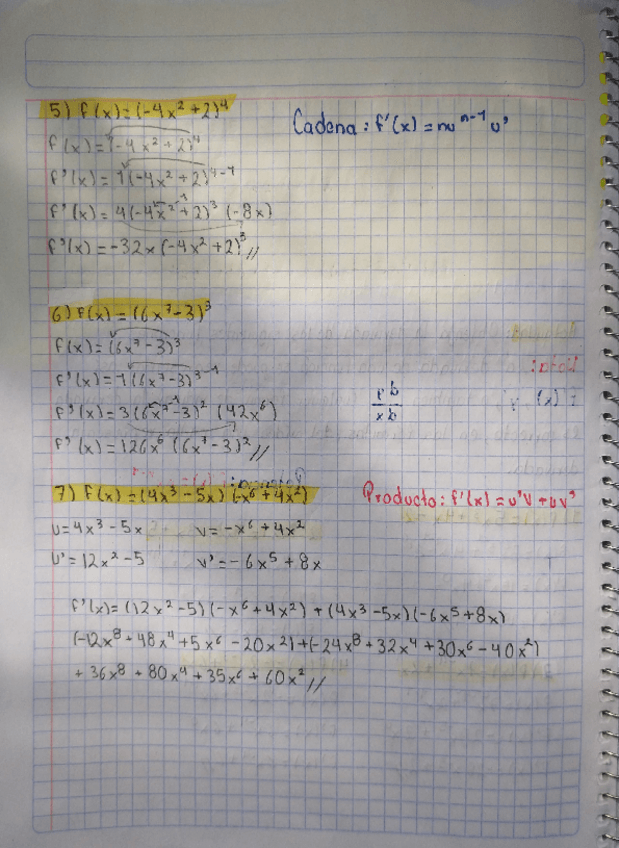 5) f(x)=(-4x²+2)⁴
Cadena: f'(x)=nuⁿ⁻¹ u'
f(x)=(-4x²+2)⁴
f'(x)=1(-4x²+2)⁴⁻¹
f'(x)=4(-4x²⁻¹+2)³ (-8x)
f'(x)=-32x(-4x²+2)³//
6) f(x)=(6x⁷-3)³
f(x)=(6x⁷-3)³
f'(x)=1(6x⁷-3)³⁻¹
f'(x)=3(6x⁷⁻¹-3)² (42x⁶)
f'(x)=126x⁶(6x⁷-3)²//
7) f(x)=(4x³-5x)(-x⁶+4x²)
Producto: f'(x)=u'v+uv'
u=4x³-5x v=-x⁶+4x²
u'=12x²-5 v'=-6x⁵+8x
f'(x)=(12x²-5)(-x⁶+4x²)+(4x³-5x)(-6x⁵+8x)
(-12x⁸+48x⁴+5x⁶-20x²)+(-24x⁸+32x⁴+30x⁶-40x²)
+36x⁸+80x⁴+35x⁶+60x²//